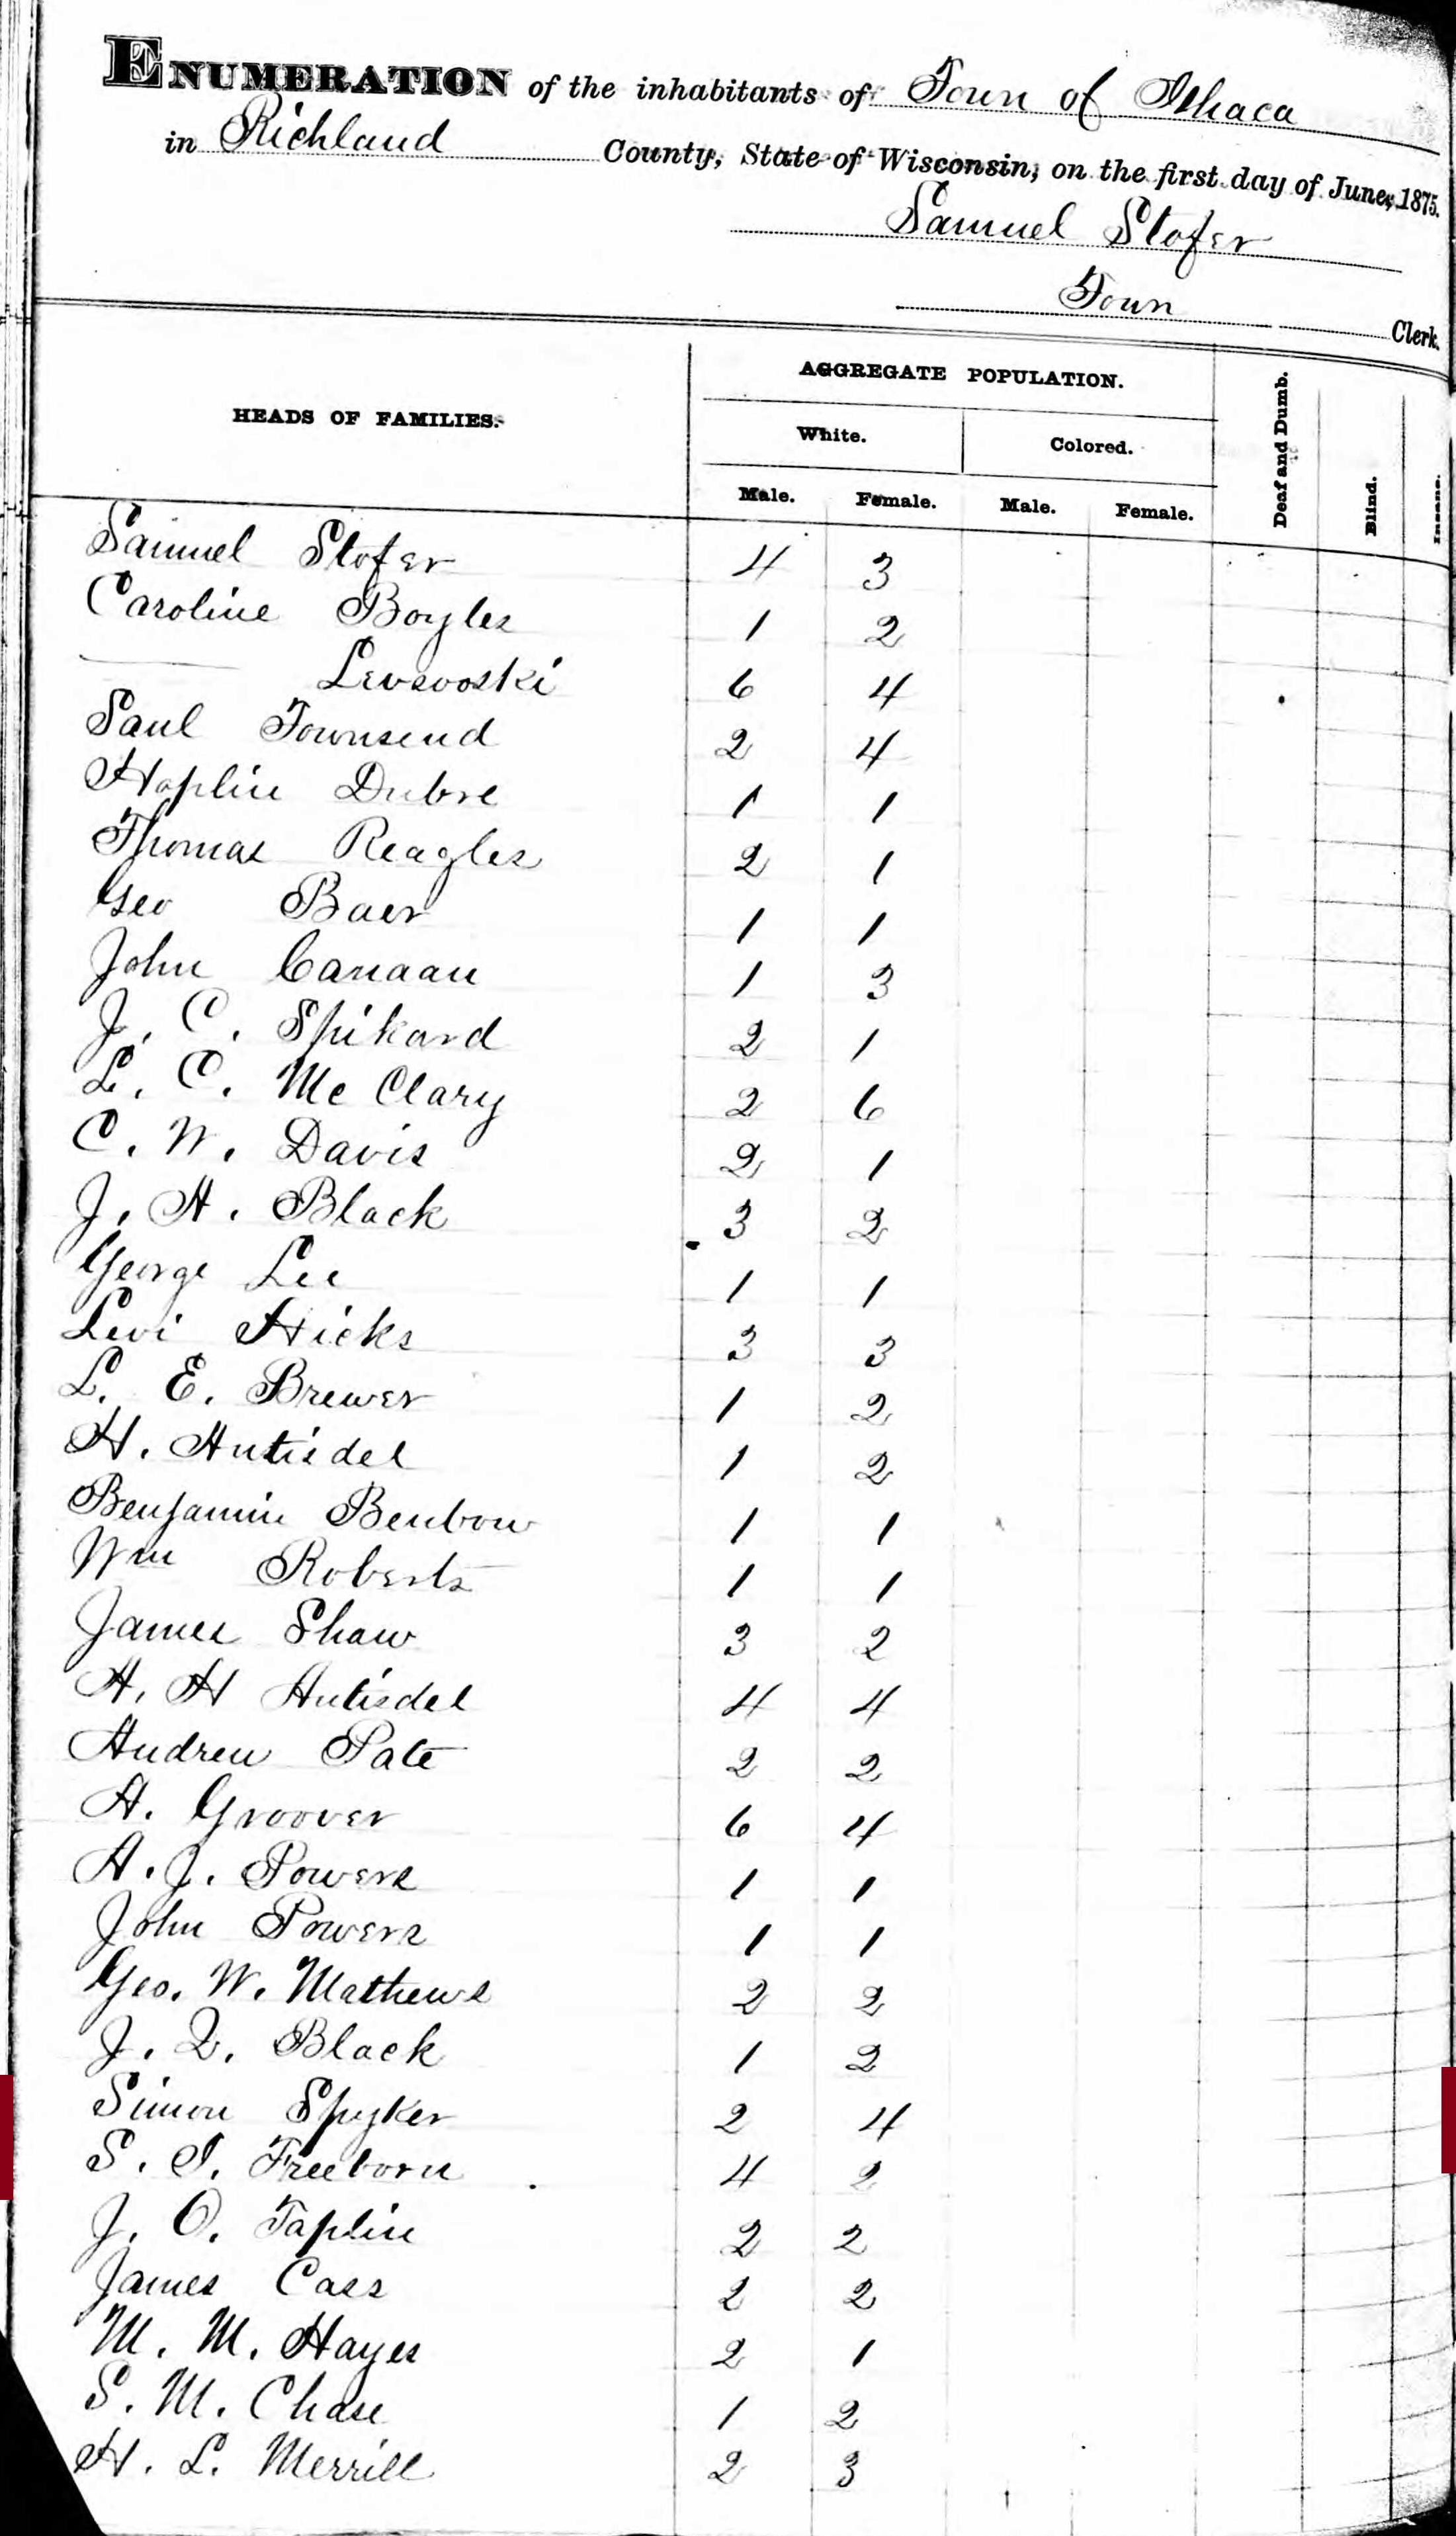 ENUMERATION of the inhabitants of Town of Ithaca
in Richland County, State of Wisconsin, on the first day of June, 1875.
Samuel Stofer
Town Clerk.
HEADS OF FAMILIES. AGGREGATE POPULATION. Deaf and Dumb. Blind. Insane.
White. Colored.
Male. Female. Male. Female.
Samuel Stofer 4 3
Caroline Boyles 1 2
6 4
Saul Townsend 2 4
1 1
Thomas Reagles 2 1
Geo Baer 1 1
John Canaan 1 3
J. C. Spikard 2 1
L. C. Mc Clary 2 6
C. W. Davis 2 1
J. A. Black 3 2
George Lee 1 1
Levi Hicks 3 3
L. E. Brewer 1 2
H. Antisdel 1 2
Benjamin Benbow 1 1
Wm Roberts 1 1
James Shaw 3 2
A. H Antisdel 4 4
Andrew Pate 2 2
A. Groover 6 4
A. J. Powers 1 1
John Powers 1 1
Geo. W. Mathews 2 2
J. Q. Black 1 2
Simon Spyker 2 4
S. I. Freeborn 4 2
J. O. Taplin 2 2
James Cass 2 2
M. M. Hayes 2 1
S. M. Chase 1 2
H. L. Merrill 2 3